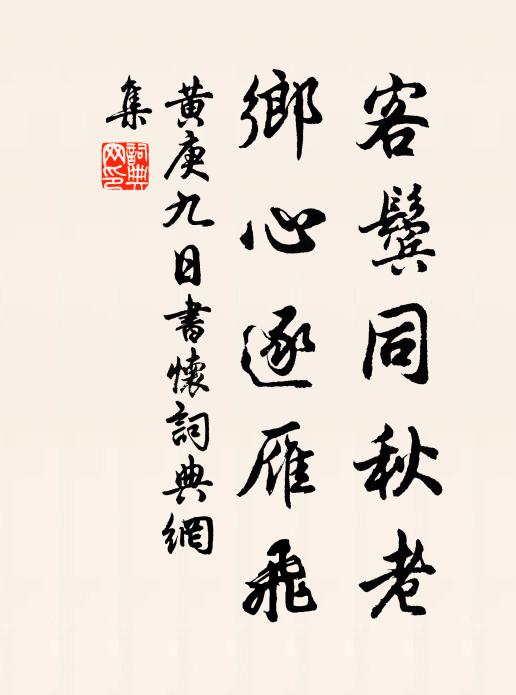 客鬢同秋老
鄉心逐雁飛
黃庚九日書懷詞典網
集
詞典
网印